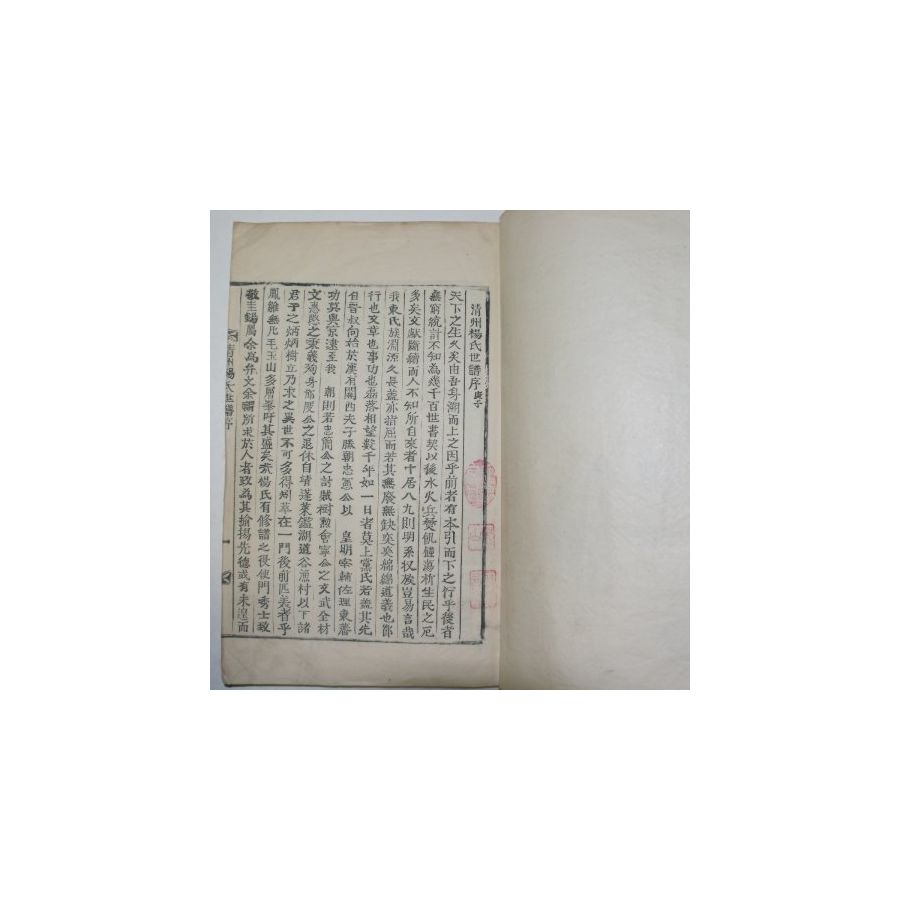 清州楊氏世譜序 庚子
天下之生久矣由吾身溯而上之因乎前者有本引而下之行乎後者
無窮統計不知為幾千百世書契以後水火兵燹飢饉蕩析生民之厄
多矣文獻斷續而人不知所自來者十居八九則明系牧族豈易言哉
我東氏族淵源久長盖亦指屈而若其無廢無缺奕奕綿綿道義也節
行也文章也事功也磊落相望數千年如一日者莫上黨氏若盖其先
自晉叔向始於漢有關西夫子勝朝忠憲公以 皇明宰輔佐理東藩
功莫與京逮至我 朝則若忠簡公之討賊樹勲會寧公之文武全材
文愍愍之秉義殉身 度公之退休自靖蓬萊鑑湖道谷漁村以下諸
君子之炳炳樹立乃求之異世不可多得矧萃在一門後前匹美者乎
鳳雛無凡毛玉山多層峯吁其盛矣哉楊氏有修譜之役使門秀士致
圭錫屬余為弁文余謂所求於人者致為其揄揚先德或有未遑而
清州楊氏世譜序
一